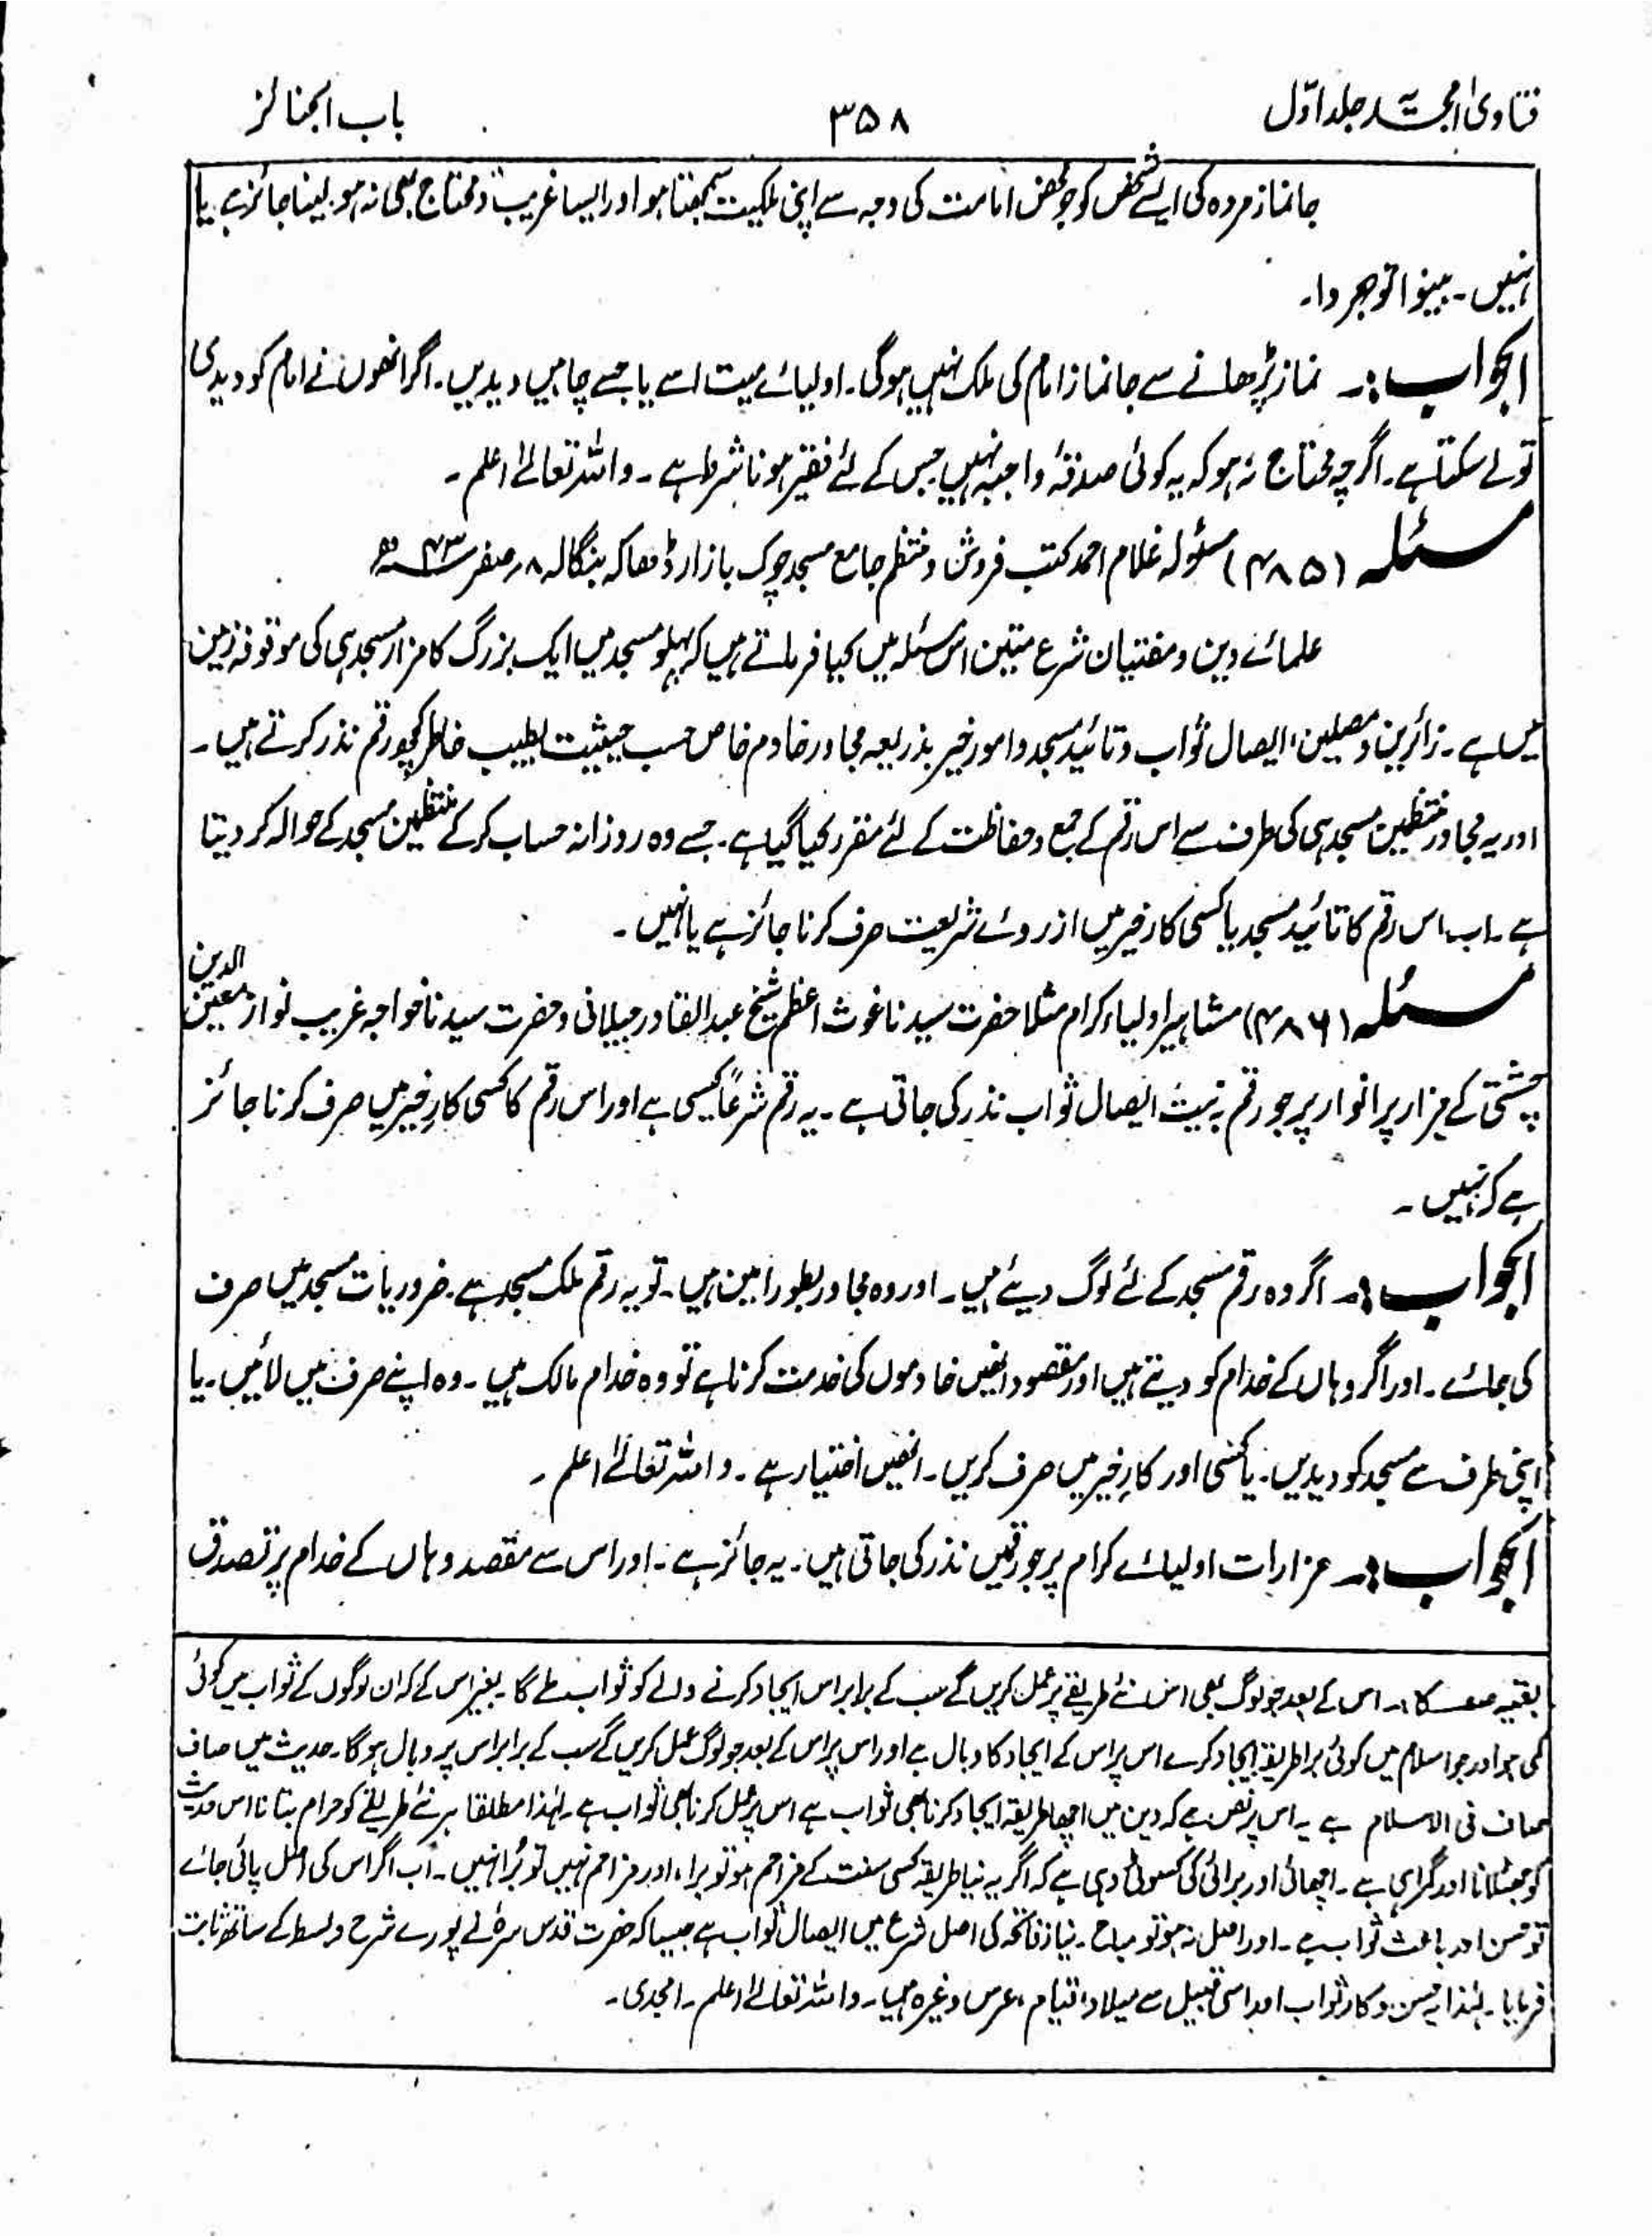 فتاویٰ امجدیہ جلد اوّل
۳۵۸
باب الجنائز
جانماز مردہ کی ایسے شخص کو جو محض امامت کی وجہ سے اپنی ملکیت سمجھتا ہو اور ایسا غریب و محتاج بھی نہ ہو لینا جائز ہے یا
نہیں ۔ بینوا توجروا۔
الجواب :۔ نماز پڑھانے سے جانماز امام کی ملک نہیں ہوگی ۔ اولیائے میت اسے یا جسے چاہیں دیدیں ۔ اگر انھوں نے امام کو دیدی
تو لے سکتا ہے ۔ اگرچہ محتاج نہ ہو کہ یہ کوئی صدقۂ واجبہ نہیں جس کے لئے فقیر ہونا شرط ہے ۔ واللہ تعالےٰ اعلم ۔
مسئلہ (۴۸۵) مسئولہ غلام احمد کتب فروش و منتظم جامع مسجد چوک بازار ڈھاکہ بنگالہ ۸ صفر ۴۳ھ
علمائے دین و مفتیان شرع متین اس مسئلہ میں کیا فرماتے ہیں کہ پہلو مسجد میں ایک بزرگ کا مزار مسجد ہی کی موقوفہ زمین
میں ہے ۔ زائرین و مصلین، ایصال ثواب و تائید مسجد و امور خیر بذریعہ مجاور خادم خاص حسب حیثیت بطیب خاطر کچھ رقم نذر کرتے ہیں ۔
اور یہ مجاور منتظمین مسجد ہی کی طرف سے اس رقم کے جمع و حفاظت کے لئے مقرر کیا گیا ہے ۔ جسے وہ روزانہ حساب کرکے منتظمین مسجد کے حوالہ کر دیتا
ہے ۔ اب اس رقم کا تائید مسجد یا کسی کار خیر میں از روئے شریعت صرف کرنا جائز ہے یا نہیں ۔
مسئلہ (۴۸۶) مشاہیر اولیاء کرام مثلا حضرت سیدنا غوث اعظم شیخ عبدالقادر جیلانی و حضرت سیدنا خواجہ غریب نواز معین الدین
چشتی کے مزار پر انوار پر جو رقم بہ نیت ایصال ثواب نذر کی جاتی ہے ۔ یہ رقم شرعاً کیسی ہے اور اس رقم کا کسی کارِ خیر میں صرف کرنا جائز
ہے کہ نہیں ۔
الجواب :۔ اگر وہ رقم مسجد کے لئے لوگ دیئے ہیں ۔ اور وہ مجاور بطور امین ہیں ۔ تو یہ رقم ملک مسجد ہے ۔ ضروریات مسجد میں صرف
کی جائے ۔ اور اگر وہاں کے خدام کو دیتے ہیں اور مقصود انھیں خادموں کی خدمت کرنا ہے تو وہ خدام مالک ہیں ۔ وہ اپنے صرف میں لائیں ۔ یا
اپنی طرف سے مسجد کو دیدیں ۔ یا کسی اور کارِ خیر میں صرف کریں ۔ انھیں اختیار ہے ۔ واللہ تعالےٰ اعلم ۔
الجواب :۔ مزارات اولیائے کرام پر جو رقمیں نذر کی جاتی ہیں ۔ یہ جائز ہے ۔ اور اس سے مقصد وہاں کے خدام پر تصدق
بقیہ کا :۔ اس کے بعد جو لوگ بھی اس نئے طریقے پر عمل کریں گے سب کے برابر اس ایجاد کرنے والے کو ثواب ملے گا ۔ بغیر اس کے کہ ان لوگوں کے ثواب میں کوئی
کمی ہو اور جو اسلام میں کوئی برا طریقہ ایجاد کرے اس پر اس کے ایجاد کا وبال ہے اور اس پر اس کے بعد جو لوگ عمل کریں گے سب کے برابر اس پر وبال ہوگا ۔ حدیث میں صاف
صاف فی الاسلام ہے یہ اس پر نص ہے کہ دین میں اچھا طریقہ ایجاد کرنا بھی ثواب ہے اس پر عمل کرنا بھی ثواب ہے ۔ لہٰذا مطلقا ہر نئے طریقے کو حرام بتانا اس حدیث
کو جھٹلانا اور گمراہی ہے ۔ اچھائی اور برائی کی کسوٹی وہی ہے کہ اگر یہ نیا طریقہ کسی سنت کے مزاحم ہو تو برا، اور مزاحم نہیں تو بُرا نہیں ۔ اب اگر اس کی اصل پائی جائے
تو حسن اور باعث ثواب ہے ۔ اور اصل نہ ہو تو مباح ۔ نیاز فاتحہ کی اصل شرع میں ایصال ثواب ہے جیسا کہ حضرت قدس سرہٗ نے پورے شرح و بسط کے ساتھ ثابت
فرمایا ۔ لہٰذا یہ حسن و کار ثواب اور اسی قبیل سے میلاد و قیام، عرس وغیرہ ہیں ۔ واللہ تعالےٰ اعلم ۔ امجدی ۔